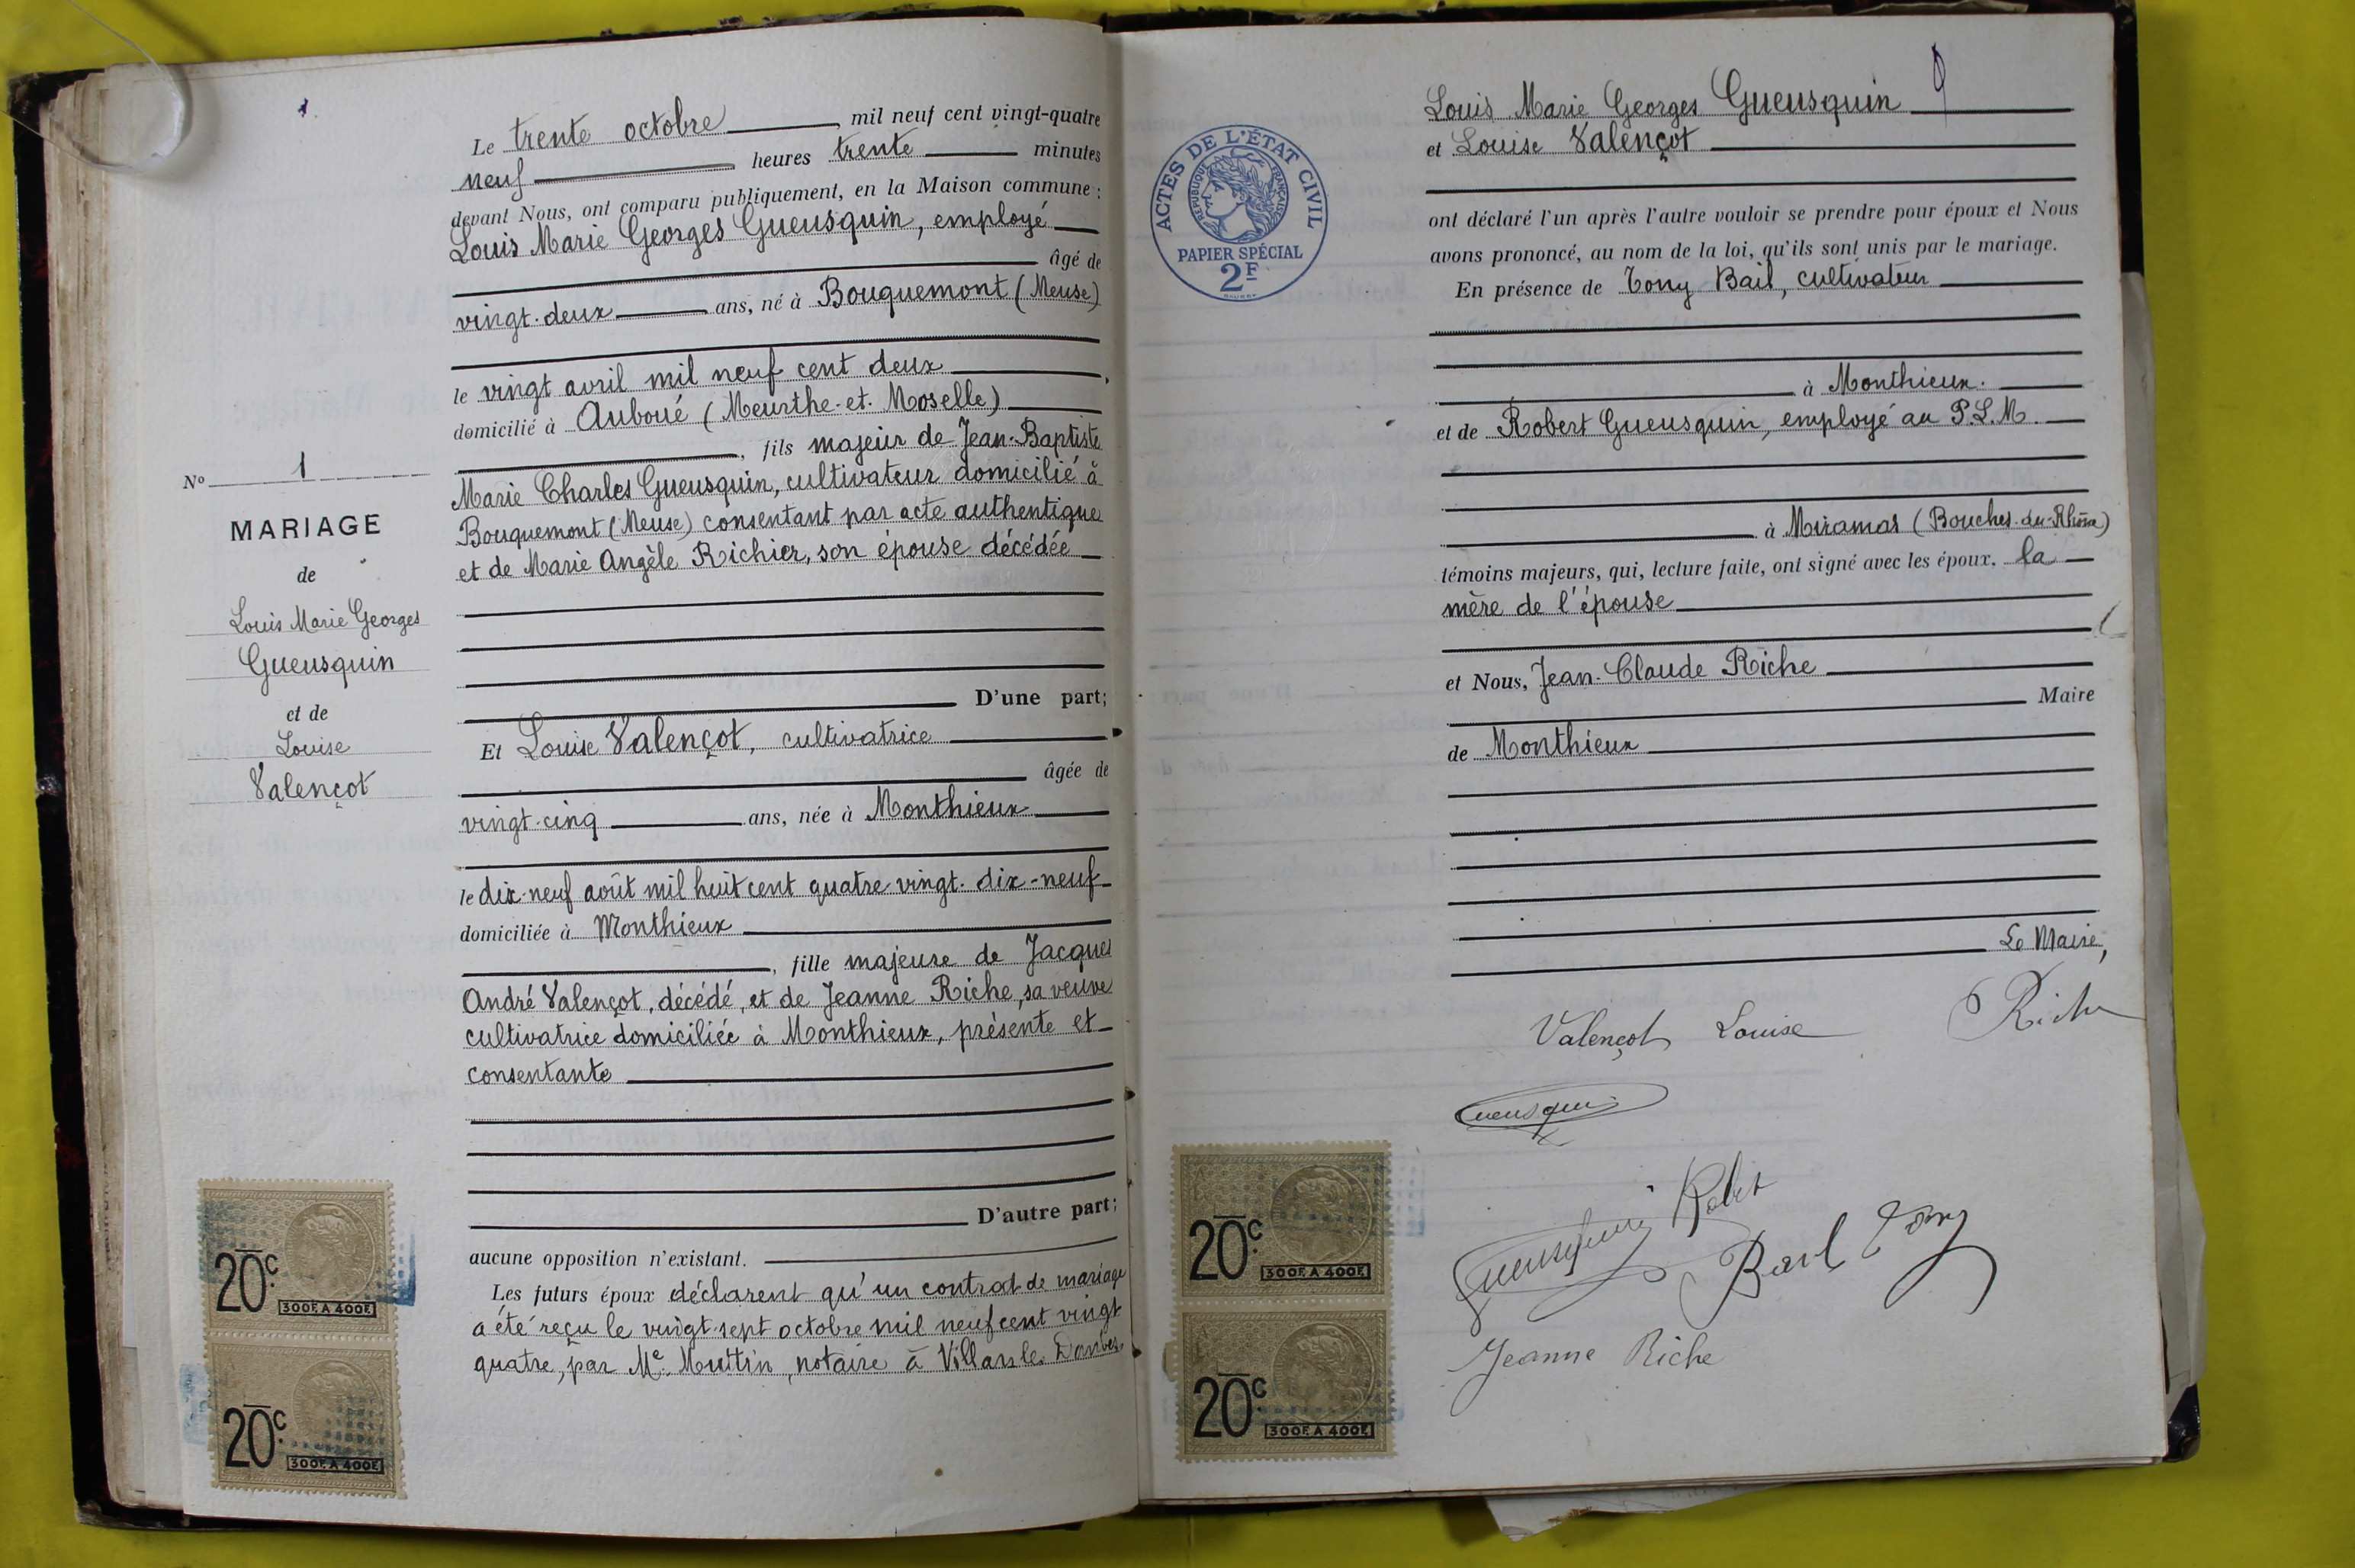 1
Le trente octobre mil neuf cent vingt-quatre
neuf heures trente minutes
devant Nous, ont comparu publiquement, en la Maison commune :
Louis Marie Georges Gueusquin, employé
âgé de
vingt-deux ans, né à Bouquemont (Meuse)
le vingt avril mil neuf cent deux
domicilié à Auboué (Meurthe-et-Moselle)
, fils majeur de Jean-Baptiste
Marie Charles Gueusquin, cultivateur domicilié à
Bouquemont (Meuse) consentant par acte authentique
et de Marie Angèle Richier, son épouse décédée
D'une part;
Et Louise Valençot, cultivatrice
âgée de
vingt-cinq ans, née à Monthieux
le dix-neuf août mil huit cent quatre-vingt-dix-neuf
domiciliée à Monthieux
, fille majeure de Jacques
André Valençot, décédé, et de Jeanne Riche, sa veuve
cultivatrice domiciliée à Monthieux, présente et
consentante
D'autre part;
aucune opposition n'existant.
Les futurs époux déclarent qu'un contrat de mariage
a été reçu le vingt-sept octobre mil neuf cent vingt
quatre, par Me Muttin, notaire à Villars les Dombes.
No 1
MARIAGE
de
Louis Marie Georges
Gueusquin
et de
Louise
Valençot
20c
300F. A 400F.
20c
300F. A 400F.
ACTES DE L'ÉTAT CIVIL
RÉPUBLIQUE FRANÇAISE
PAPIER SPÉCIAL
2F
Louis Marie Georges Gueusquin
et Louise Valençot
ont déclaré l'un après l'autre vouloir se prendre pour époux et Nous
avons prononcé, au nom de la loi, qu'ils sont unis par le mariage.
En présence de Tony Bail, cultivateur
à Monthieux.
et de Robert Gueusquin, employé au P.L.M.
à Miramas (Bouches-du-Rhône)
témoins majeurs, qui, lecture faite, ont signé avec les époux, la
mère de l'épouse
et Nous, Jean-Claude Riche
Maire
de Monthieux
Le Maire,
Valençot Louise Riche
Gueusquin
Gueusquin Robert
Bail Tony
Jeanne Riche
20c
300F. A 400F.
20c
300F. A 400F.